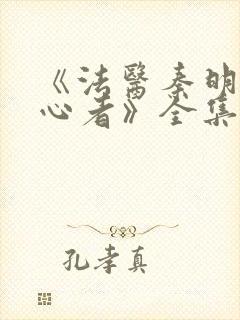 《法醫秦明
心者》全集
孔孝真